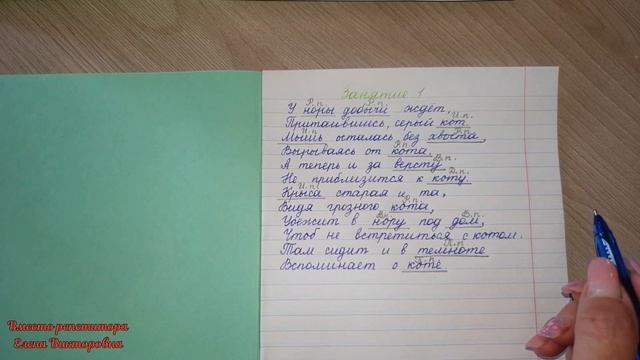 Занятие 1
Р.п. Р.п.
У норы добычи ждёт,
И.п.
Притаившись, серый кот.
И.п. Р.п.
Мышь осталась без хвоста,
Р.п.
Вырываясь от кота.
В.п.
А теперь и за версту
Д.п.
Не приблизится к коту.
И.п.
Крыса старая и та,
Видя грозного кота,
В.п. В.п.
Убежит в нору под дом,
Чтоб не встретиться с котом.
П.п.
Там сидит и в темноте
П.п.
Вспоминает о коте
Вместо репетитора
Елена Викторовна